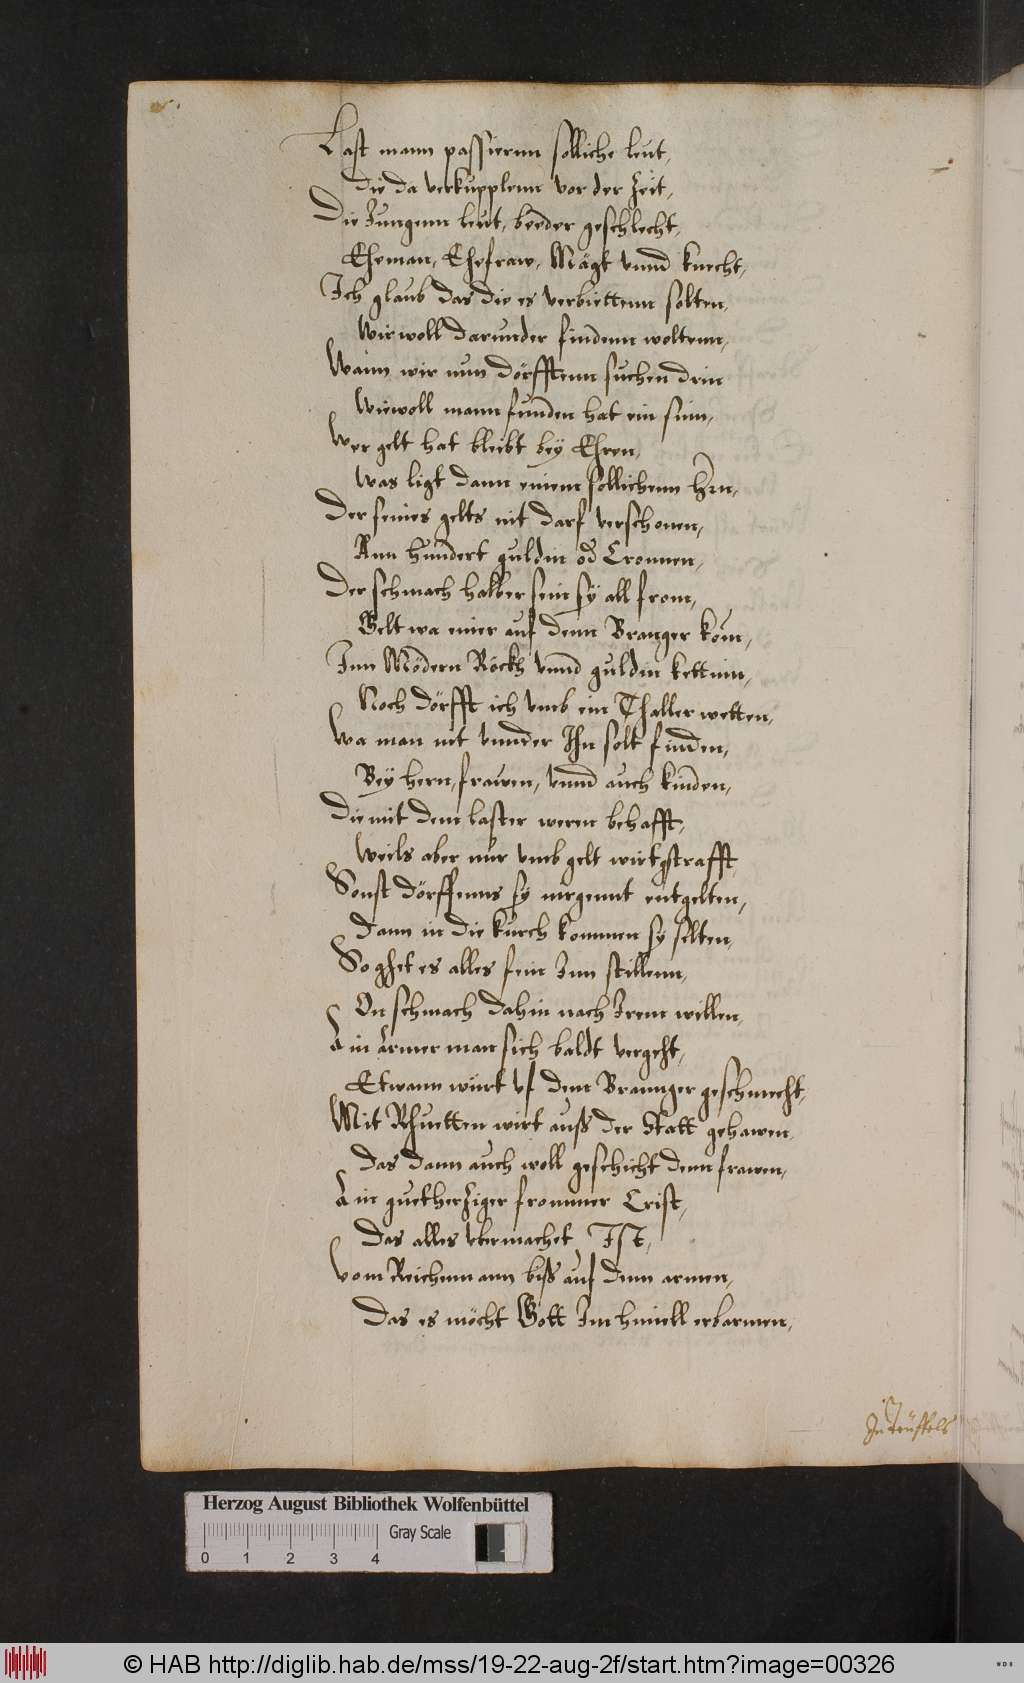 Last mann passiernn solliche leut,
die da verkupplenn vor der Zeit,
Die Jungenn leut, beeder geschlecht,
Eheman, Ehefraw, Mägt vnnd knecht,
Ich glaub das die es verbiettenn solten,
Wir woll darunder findenn woltenn,
Wann wir nun dörfftenn suchen drin
Wiewoll mann funden hat ein sinn,
Wer gelt hat bleibt bey Ehren,
Was ligt dann einem sollichenn Hern,
Der seines gelts nit darf verschonen,
Ann hundert guldin od Cronnen,
Der schmach halber sein sy all from,
Gelt wa einer auf denn Branger kom,
Inn Mödern Röckh vnnd guldin kettinn,
Noch dörfft ich vmb ein Thaller wetten,
Wa man nit vnnder Ihn solt finden,
Bey hern, frawen, vnnd auch kinden,
Die mit dem laster weren behafft,
Weils aber nur vmb gelt wirt gstrafft
Sonst dörffenns sy nirgennt entgelten,
Dann in die kürch kommen sy selten,
So ghet es alles fein Inn stillenn,
On schmach dahin nach Irem willen,
Ain armer man sich baldt vergeht,
Etwann würt vf dem Brannger geschmecht,
Mit Rhuetten wirt auß der Statt gehawen,
Das dann auch woll geschicht denn frawen,
Ain guetherziger frommer Crist,
Das alles vbermachet Ist,
Vom Reichenmann biß auf denn armen,
Das es möcht Gott Im himell erbarmen,
Herzog August Bibliothek Wolfenbüttel
Gray Scale
0 1 2 3 4
© HAB http://diglib.hab.de/mss/19-22-aug-2f/start.htm?image=00326